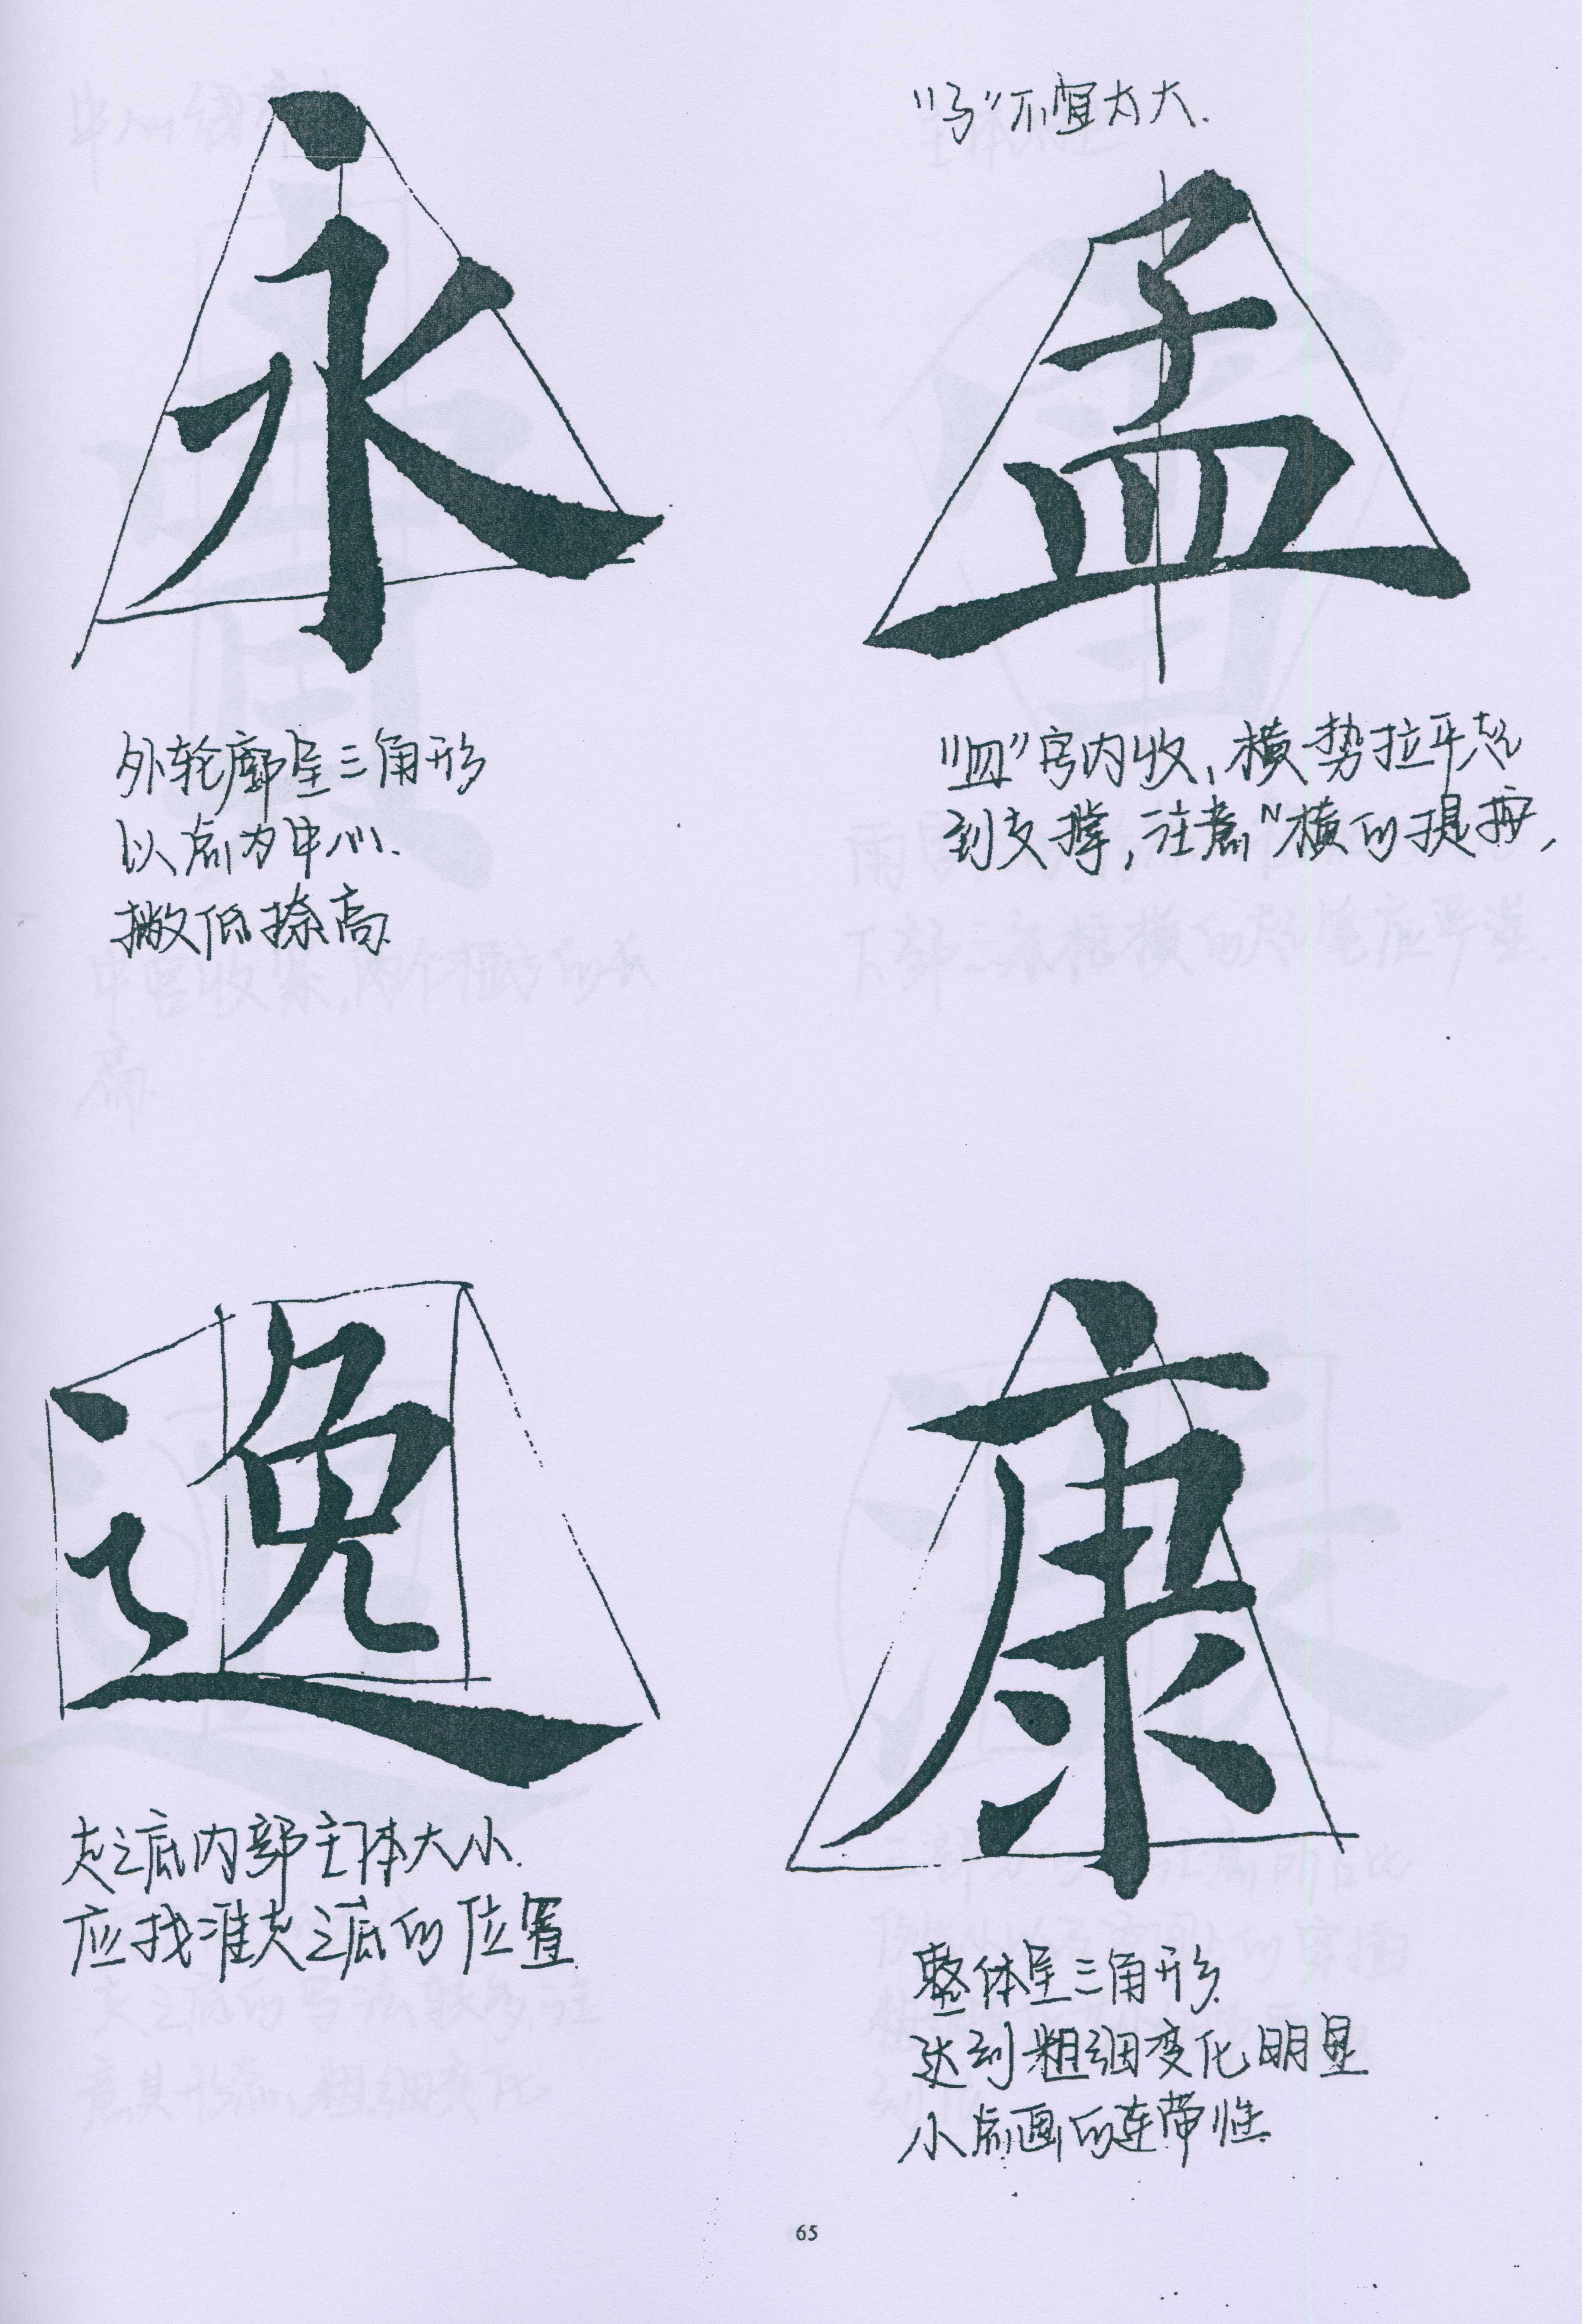 永
外轮廓呈三角形
以点为中心.
撇低捺高.
"子"不宜太大.
孟
"皿"字内收,横势拉平起
到支撑,注意"横的提按,
逸
走之底内部主体大小.
应找准走之底的位置
康
整体呈三角形.
达到粗细变化明显
小点画的连带性.
65